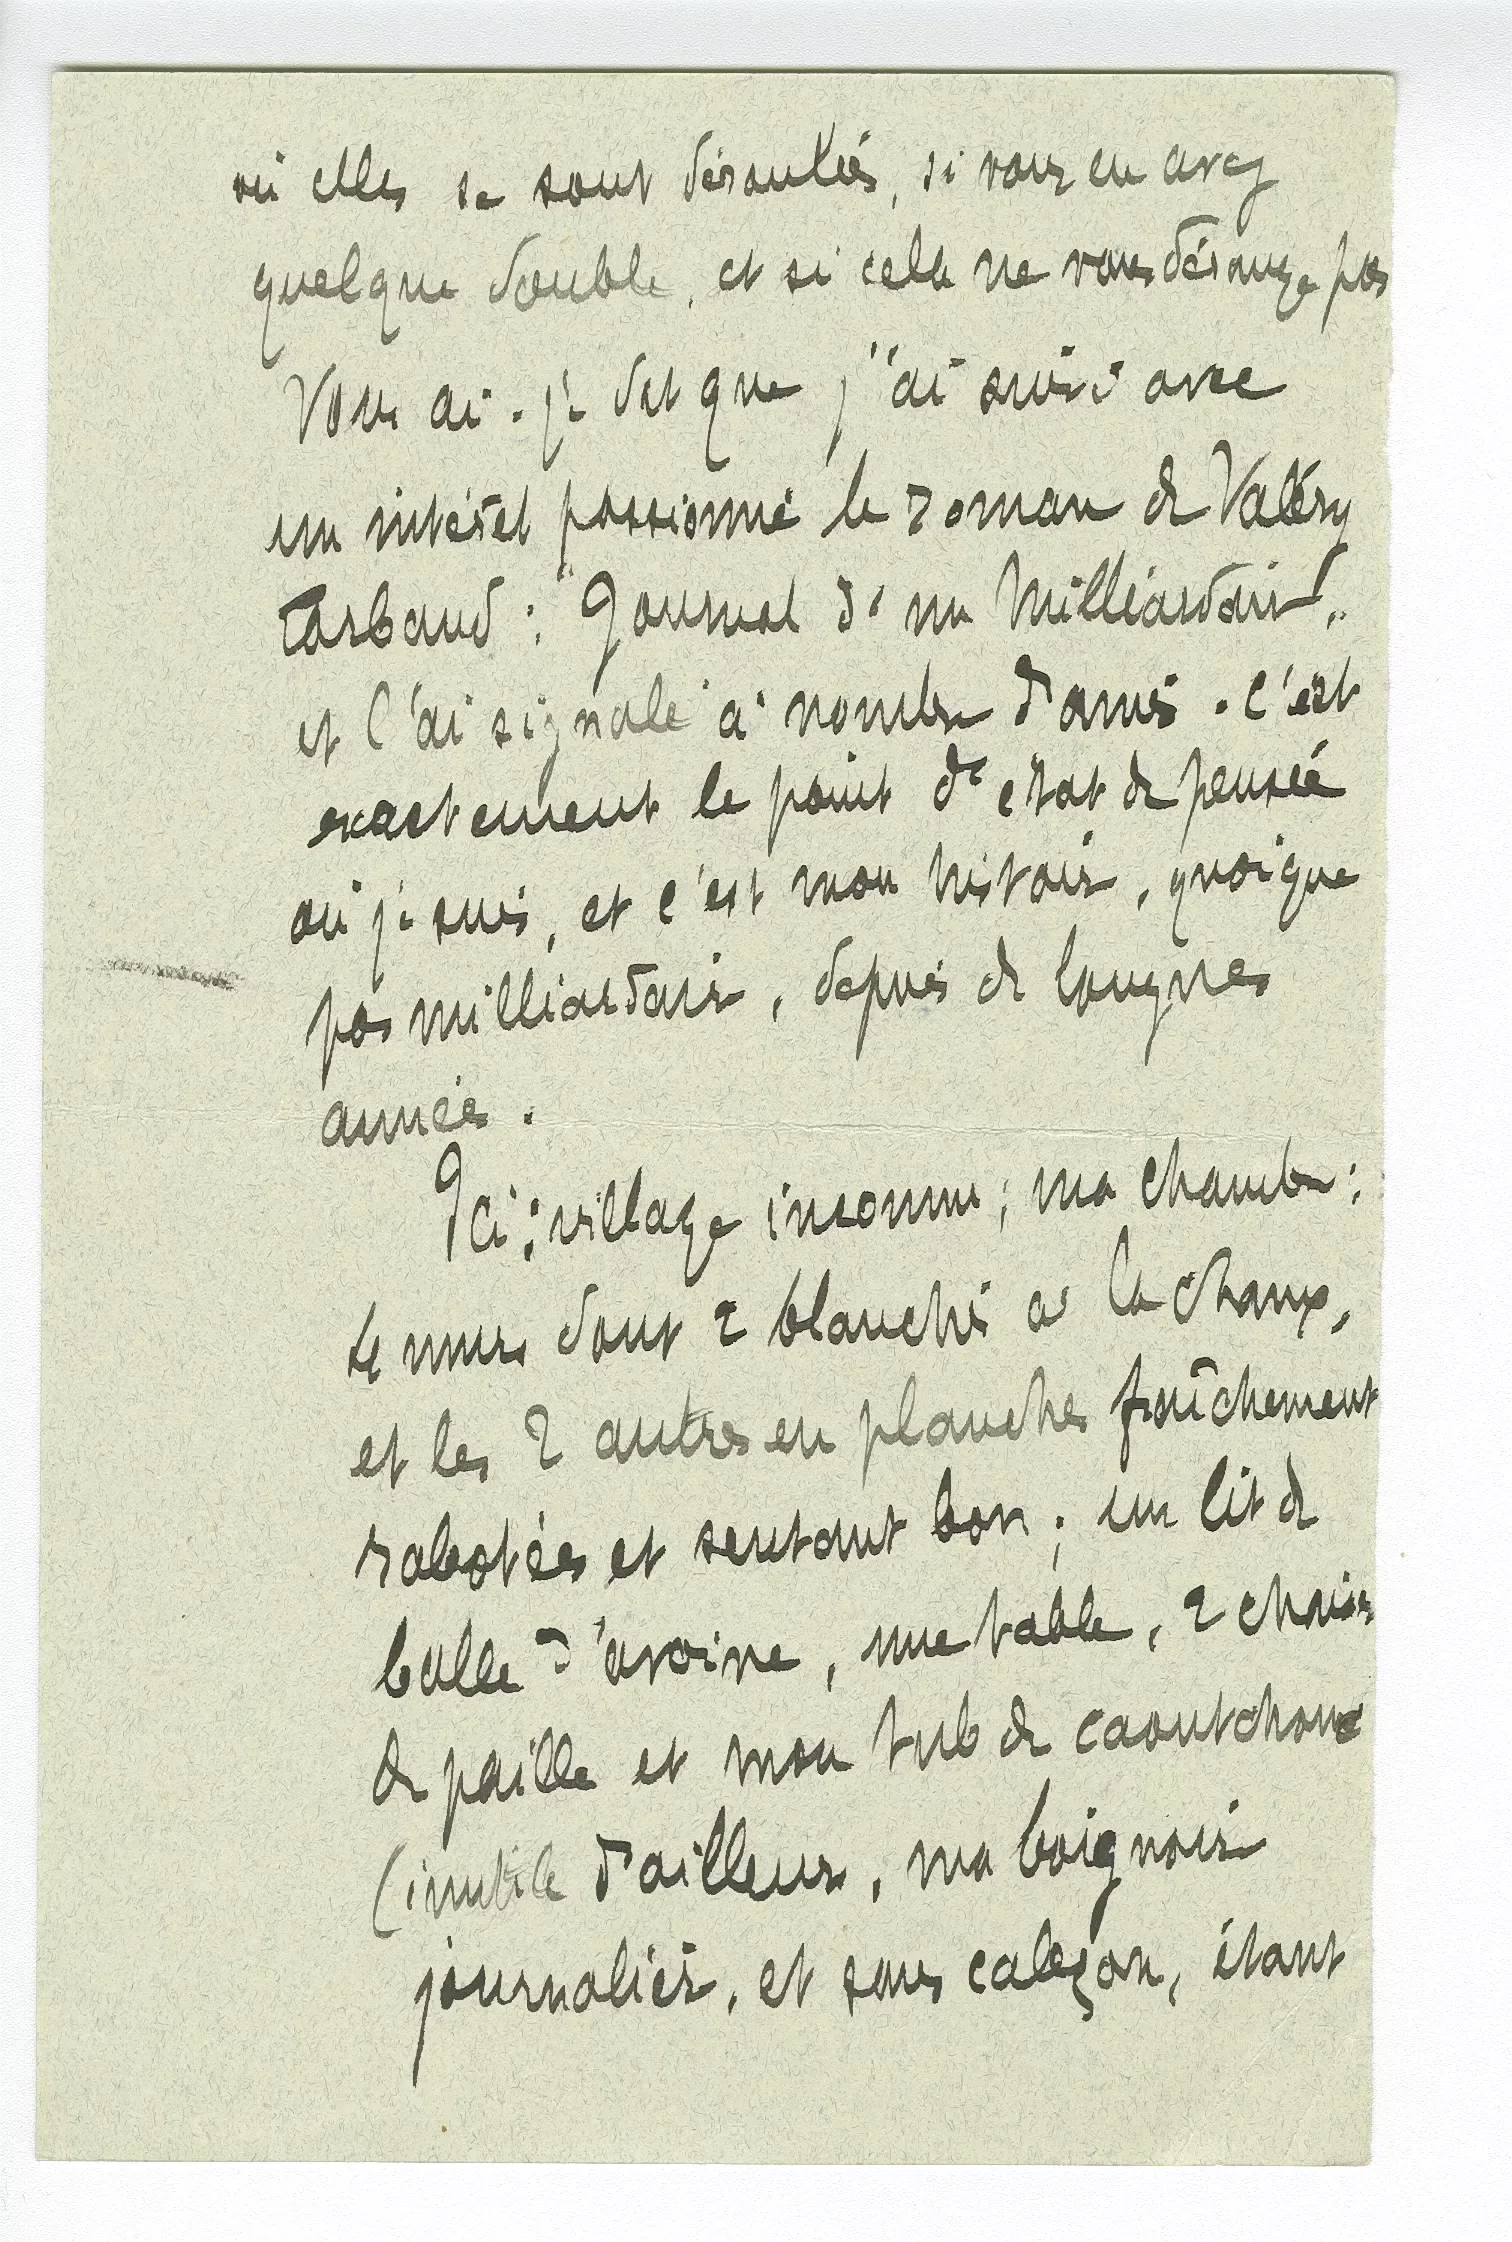 où elles se sont déroulées, si vous en avez
quelque double, et si cela ne vous dérange pas
Vous ai-je dit que j'ai suivi avec
un intérêt passionné le roman de Valéry
Larbaud : "Journal d'un Milliardaire",
et l'ai signalé à nombre d'amis. C'est
exactement le point d'état de pensée
où je suis, et c'est mon histoire, quoique
pas milliardaire, depuis de longues
années.
Ici : village inconnu ; ma chambre :
4 murs dont 2 blanchis à la chaux,
et les 2 autres en planches fraîchement
rabotées et sentant bon ; un lit de
balle d'avoine, une table, 2 chaises
de paille et mon tub de caoutchouc
(inutile d'ailleurs, ma baignoire
journalière, et sans caleçon, étant